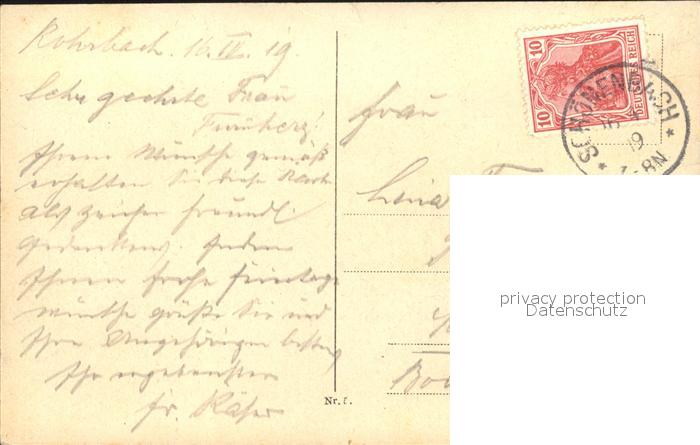 Rohrbach. 16.IV.19
Sehr geehrte Frau
Ihrem Wunsche gemäß
erhalten Sie diese Karte
als Zeichen freundl.
Gedenkens. Indem
Ihnen frohe
wünsche grüße Sie und
Ihre Angehörigen bestens
Ihr ergebenster
Fr.
Frau
Lina
Nr. 5.
10
10
DEUTSCHES REICH
19
privacy protection
Datenschutz